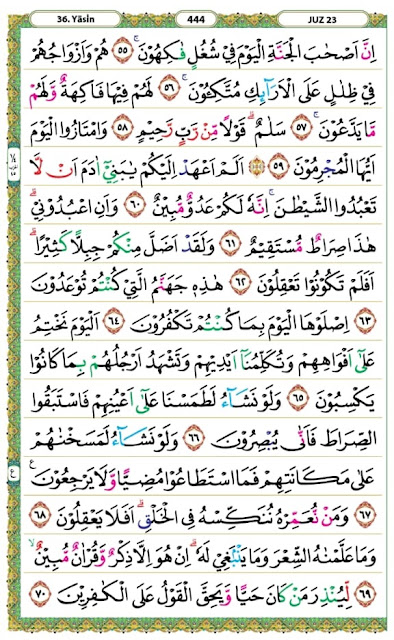 36. Yāsīn 444 JUZ 23
اِنَّ اَصْحٰبَ الْجَنَّةِ الْيَوْمَ فِيْ شُغُلٍ فٰكِهُوْنَ ۚ ۝٥٥ هُمْ وَاَزْوَاجُهُمْ
فِيْ ظِلٰلٍ عَلَى الْاَرَاۤىِٕكِ مُتَّكِـُٔوْنَ ۚ ۝٥٦ لَهُمْ فِيْهَا فَاكِهَةٌ وَّلَهُمْ
مَّا يَدَّعُوْنَ ۚ ۝٥٧ سَلٰمٌ ۗ قَوْلًا مِّنْ رَّبٍّ رَّحِيْمٍ ۝٥٨ وَامْتَازُوا الْيَوْمَ
اَيُّهَا الْمُجْرِمُوْنَ ۝٥٩ ۞ اَلَمْ اَعْهَدْ اِلَيْكُمْ يٰبَنِيْٓ اٰدَمَ اَنْ لَّا
تَعْبُدُوا الشَّيْطٰنَۚ اِنَّهٗ لَكُمْ عَدُوٌّ مُّبِيْنٌ ۙ ۝٦٠ وَاَنِ اعْبُدُوْنِيْ ۗ
هٰذَا صِرَاطٌ مُّسْتَقِيْمٌ ۝٦١ وَلَقَدْ اَضَلَّ مِنْكُمْ جِبِلًّا كَثِيْرًا ۗ
اَفَلَمْ تَكُوْنُوْا تَعْقِلُوْنَ ۝٦٢ هٰذِهٖ جَهَنَّمُ الَّتِيْ كُنْتُمْ تُوْعَدُوْنَ
۝٦٣ اِصْلَوْهَا الْيَوْمَ بِمَا كُنْتُمْ تَكْفُرُوْنَ ۝٦٤ اَلْيَوْمَ نَخْتِمُ
عَلٰٓى اَفْوَاهِهِمْ وَتُكَلِّمُنَآ اَيْدِيْهِمْ وَتَشْهَدُ اَرْجُلُهُمْ بِمَا كَانُوْا
يَكْسِبُوْنَ ۝٦٥ وَلَوْ نَشَاۤءُ لَطَمَسْنَا عَلٰٓى اَعْيُنِهِمْ فَاسْتَبَقُوا
الصِّرَاطَ فَاَنّٰى يُبْصِرُوْنَ ۝٦٦ وَلَوْ نَشَاۤءُ لَمَسَخْنٰهُمْ
عَلٰى مَكَانَتِهِمْ فَمَا اسْتَطَاعُوْا مُضِيًّا وَّلَا يَرْجِعُوْنَ ࣖ
۝٦٧ وَمَنْ نُّعَمِّرْهُ نُنَكِّسْهُ فِى الْخَلْقِۗ اَفَلَا يَعْقِلُوْنَ ۝٦٨
وَمَا عَلَّمْنٰهُ الشِّعْرَ وَمَا يَنْۢبَغِيْ لَهٗ ۗاِنْ هُوَ اِلَّا ذِكْرٌ وَّقُرْاٰنٌ مُّبِيْنٌ ۙ
۝٦٩ لِّيُنْذِرَ مَنْ كَانَ حَيًّا وَّيَحِقَّ الْقَوْلُ عَلَى الْكٰفِرِيْنَ ۝٧٠
ع